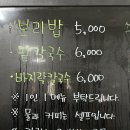 보리밥 5,000
팥칼국수 6,000
바지락칼국수 6,000
※ 1인 1메뉴 부탁드립니다.
※ 물과 커피는 셀프입니다.